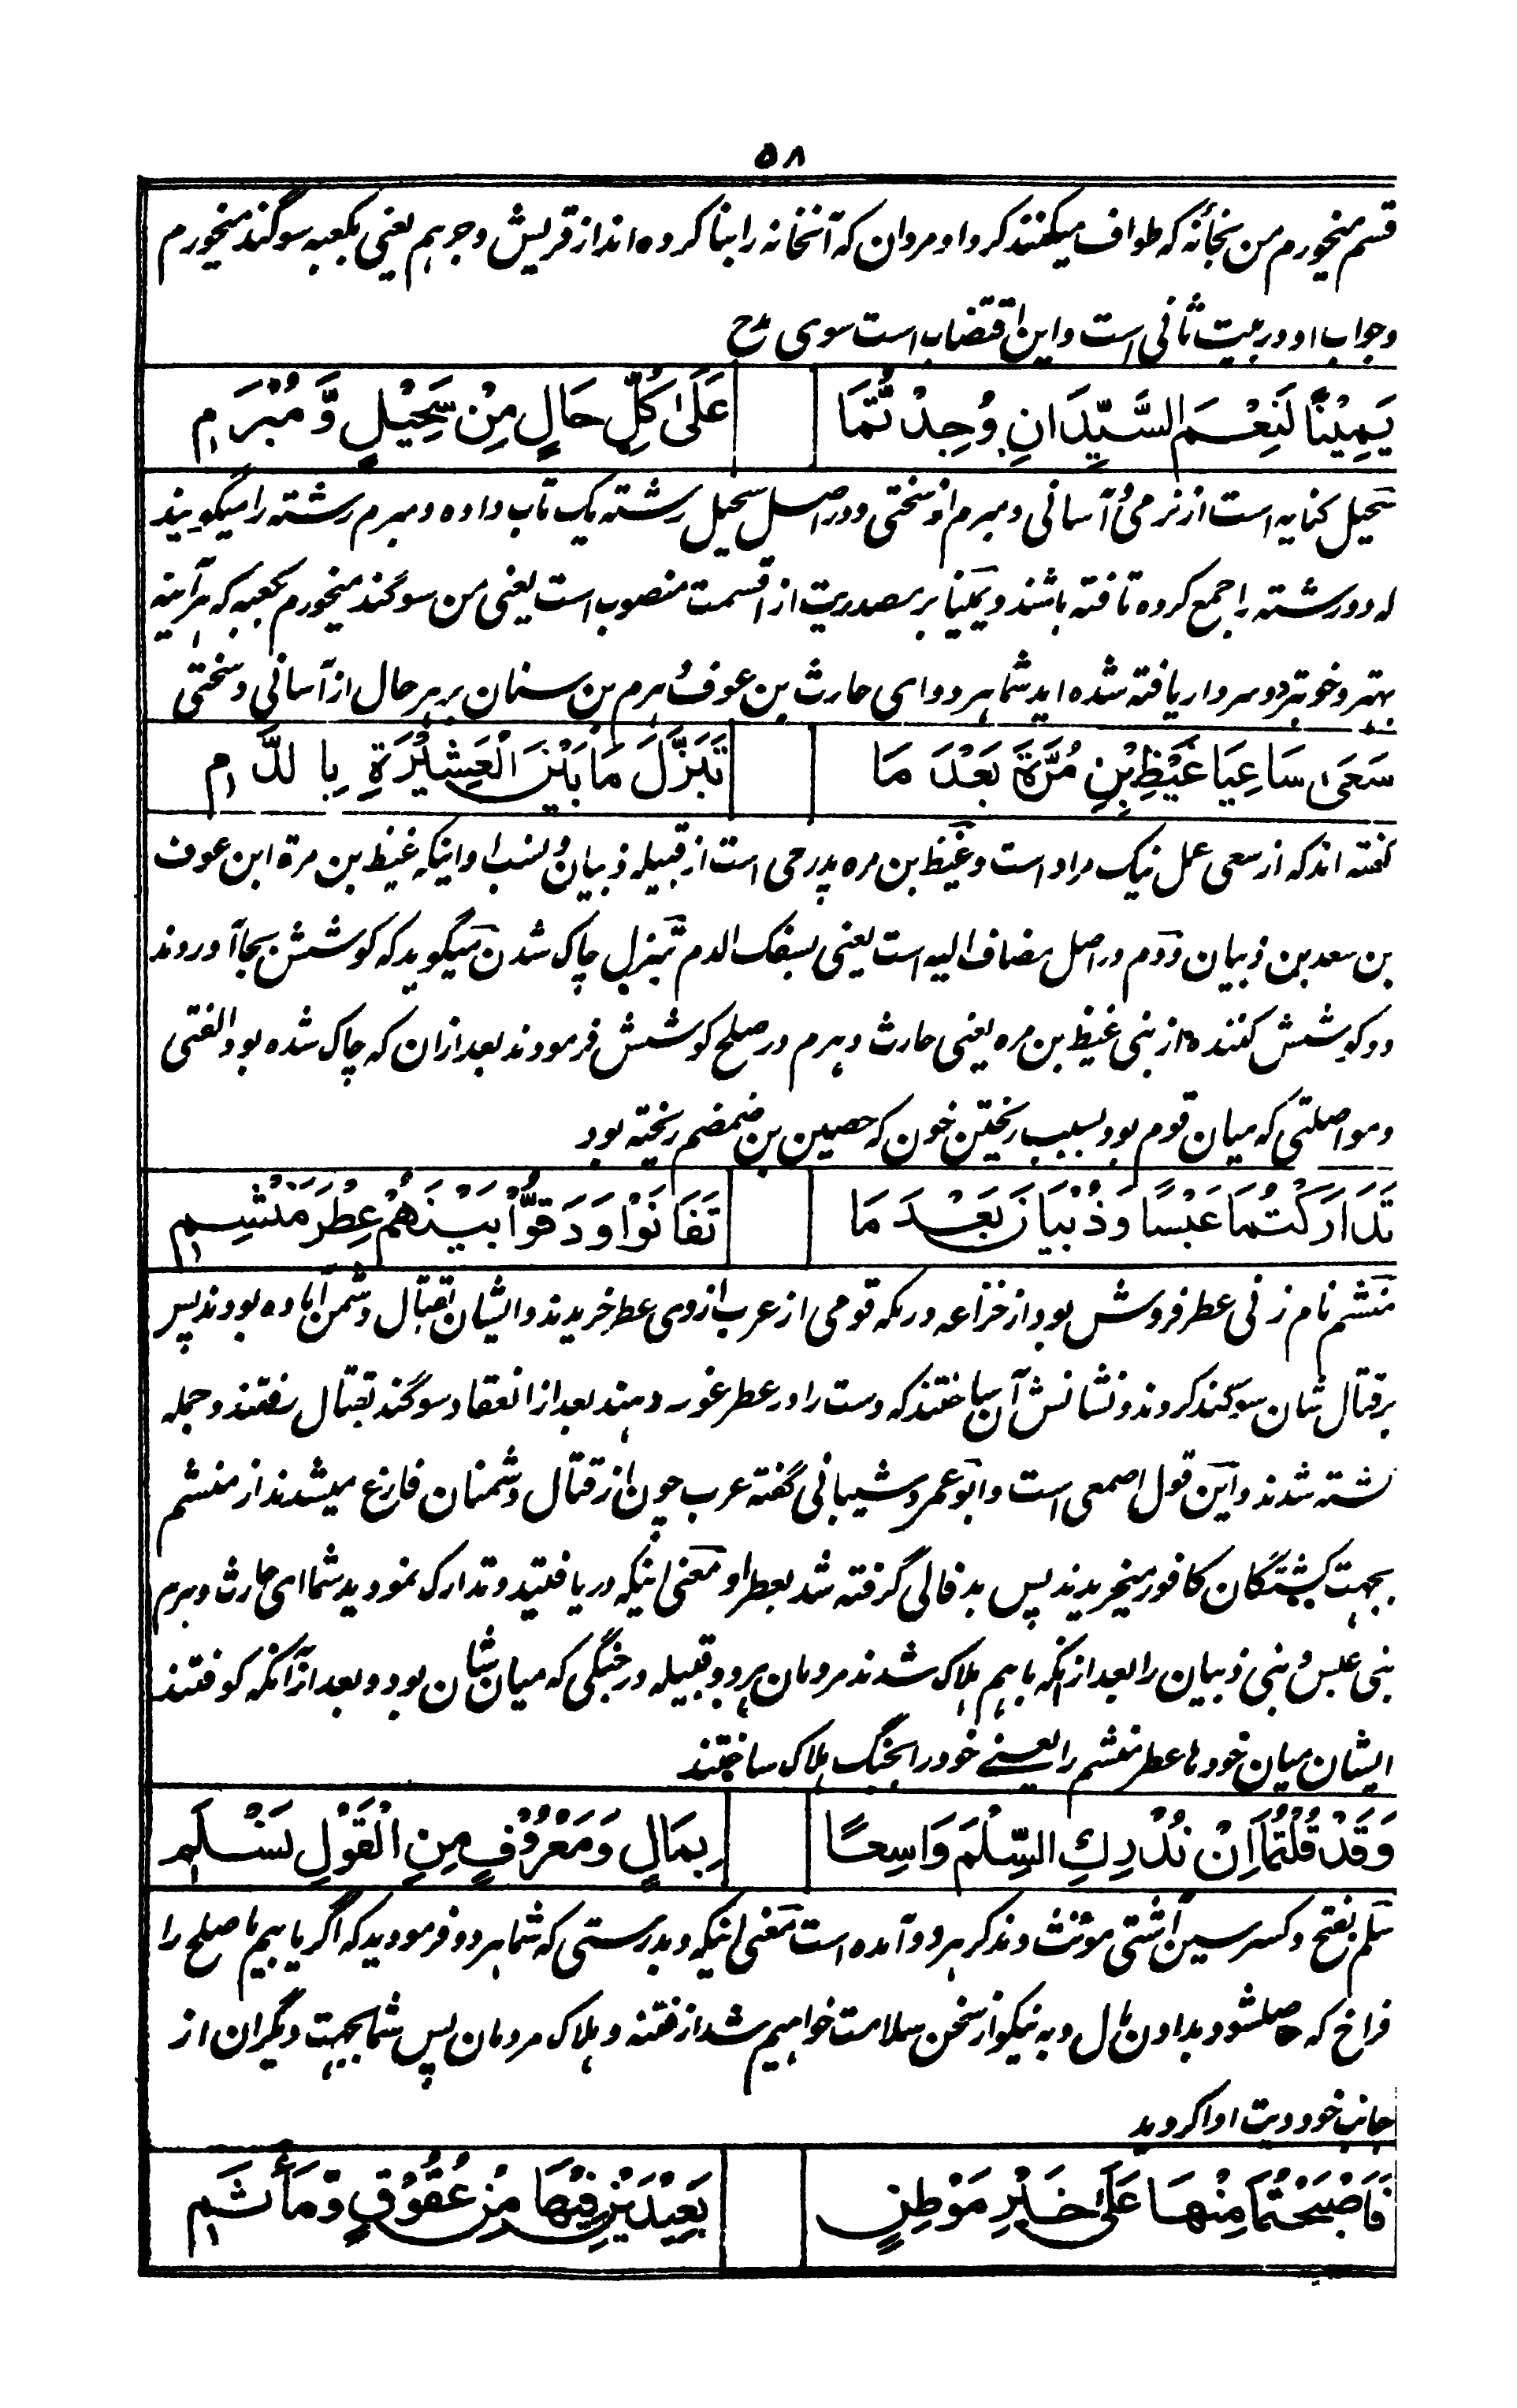 ۵۸
قسم میخورم من بخانه که طواف میکنند گرد او مردان که آنخانه را بنا کرده اند از قریش و جرهم یعنی بکعبه سوگند میخورم
وجواب او در بیت ثانی است و این اقتضاب است سوی مدح
يَمِيْنًا لَنِعْمَ السَّيِّدَانِ وُجِدْتُّمَا عَلَىٰ كُلِّ حَالٍ مِنْ سَحِيْلٍ وَّمُبْرَمٖ
سحیل کنایه است از نرمی و آسانی و مبرم از سختی و در اصل سحیل رشته یک تاب داده و مبرم رشته را میگویند
که دو رشته را جمع کرده تافته باشند و یمینا بر مصدریت از اقسمت منصوب است یعنی من سوگند میخورم بکعبه که هر آینه
بهتر و خوبتر دو سردار یافته شده اید شما هر دو ای حارث بن عوف و هرم بن سنان بر هر حال از آسانی و سختی
سَعَىٰ سَاعِيَا غَيْظِ بْنِ مُرَّةَ بَعْدَ مَا تَبَزَّلَ مَا بَيْنَ الْعَشِيْرَةِ بِالدَّمٖ
گفته اند که از سعی عمل نیک مراد است و غیظ بن مره پدر حی است از قبیله ذبیان و نسب او اینکه غیظ بن مرة ابن عوف
بن سعد بن ذبیان و دم در اصل مضاف الیه است یعنی بسفک الدم تبزل چاک شدن میگوید که کوشش بجا آوردند
دو کوشش کننده از بنی غیظ بن مره یعنی حارث و هرم در صلح کوشش فرمودند بعد از ان که چاک شده بود الفتی
و مواصلتی که میان قوم بود بسبب ریختن خون که حصین بن ضمضم ریخته بود
تَدَارَكْتُمَا عَبْسًا وَذُبْيَانَ بَعْدَ مَا تَفَانَوْا وَدَقُّوْا بَيْنَهُمْ عِطْرَ مَنْشِمٖ
منشم نام زنی عطر فروش بود از خزاعه در مکه قومی از عرب از وی عطر خریدند و ایشان بقتال دشمن آماده بودند پس
بر قتال شان سوگند کردند و نشانش آن ساختند که دست را در عطر غوسه دهند بعد از انعقاد سوگند بقتال رفتند و جمله
کشته شدند و این قول اصمعی است و ابو عمرو شیبانی گفته عرب چون از قتال دشمنان فارغ میشدند از منشم
بجهت کشتگان کافور میخریدند پس بدفالی گرفته شد بعطر او معنی اینکه دریافتید و تدارک نمودید شما ای حارث و هرم
بنی عبس و بنی ذبیان را بعد از انکه باهم هلاک شدند مردمان هر دو قبیله در جنگی که میان شان بود و بعد از آنکه کوفتند
ایشان میان خودها عطر منشم را یعنی خود را بجنگ هلاک ساختند
وَقَدْ قُلْتُمَا اِنْ نُدْرِكِ السِّلْمَ وَاسِعًا بِمَالٍ وَمَعْرُوْفٍ مِنِ الْقَوْلِ نَسْلَمٖ
سلم بفتح و کسر سین آشتی مؤنث و مذکر هر دو آمده است معنی اینکه و بدرستی که شما هر دو فرمودید که اگر یابیم ما صلح را
فراخ که حاصل شود بدادن مال و به نیکو از سخن سلامت خواهیم شد از فتنه و هلاک مردمان پس شما بجهت دیگران از
جانب خود دیت ادا کردید
فَاَصْبَحْتُمَا مِنْهَا عَلَىٰ خَيْرِ مَوْطِنٍ بَعِيْدَيْنِ فِيْهَا مِنْ عُقُوْقٍ وَّمَأْثَمٖ